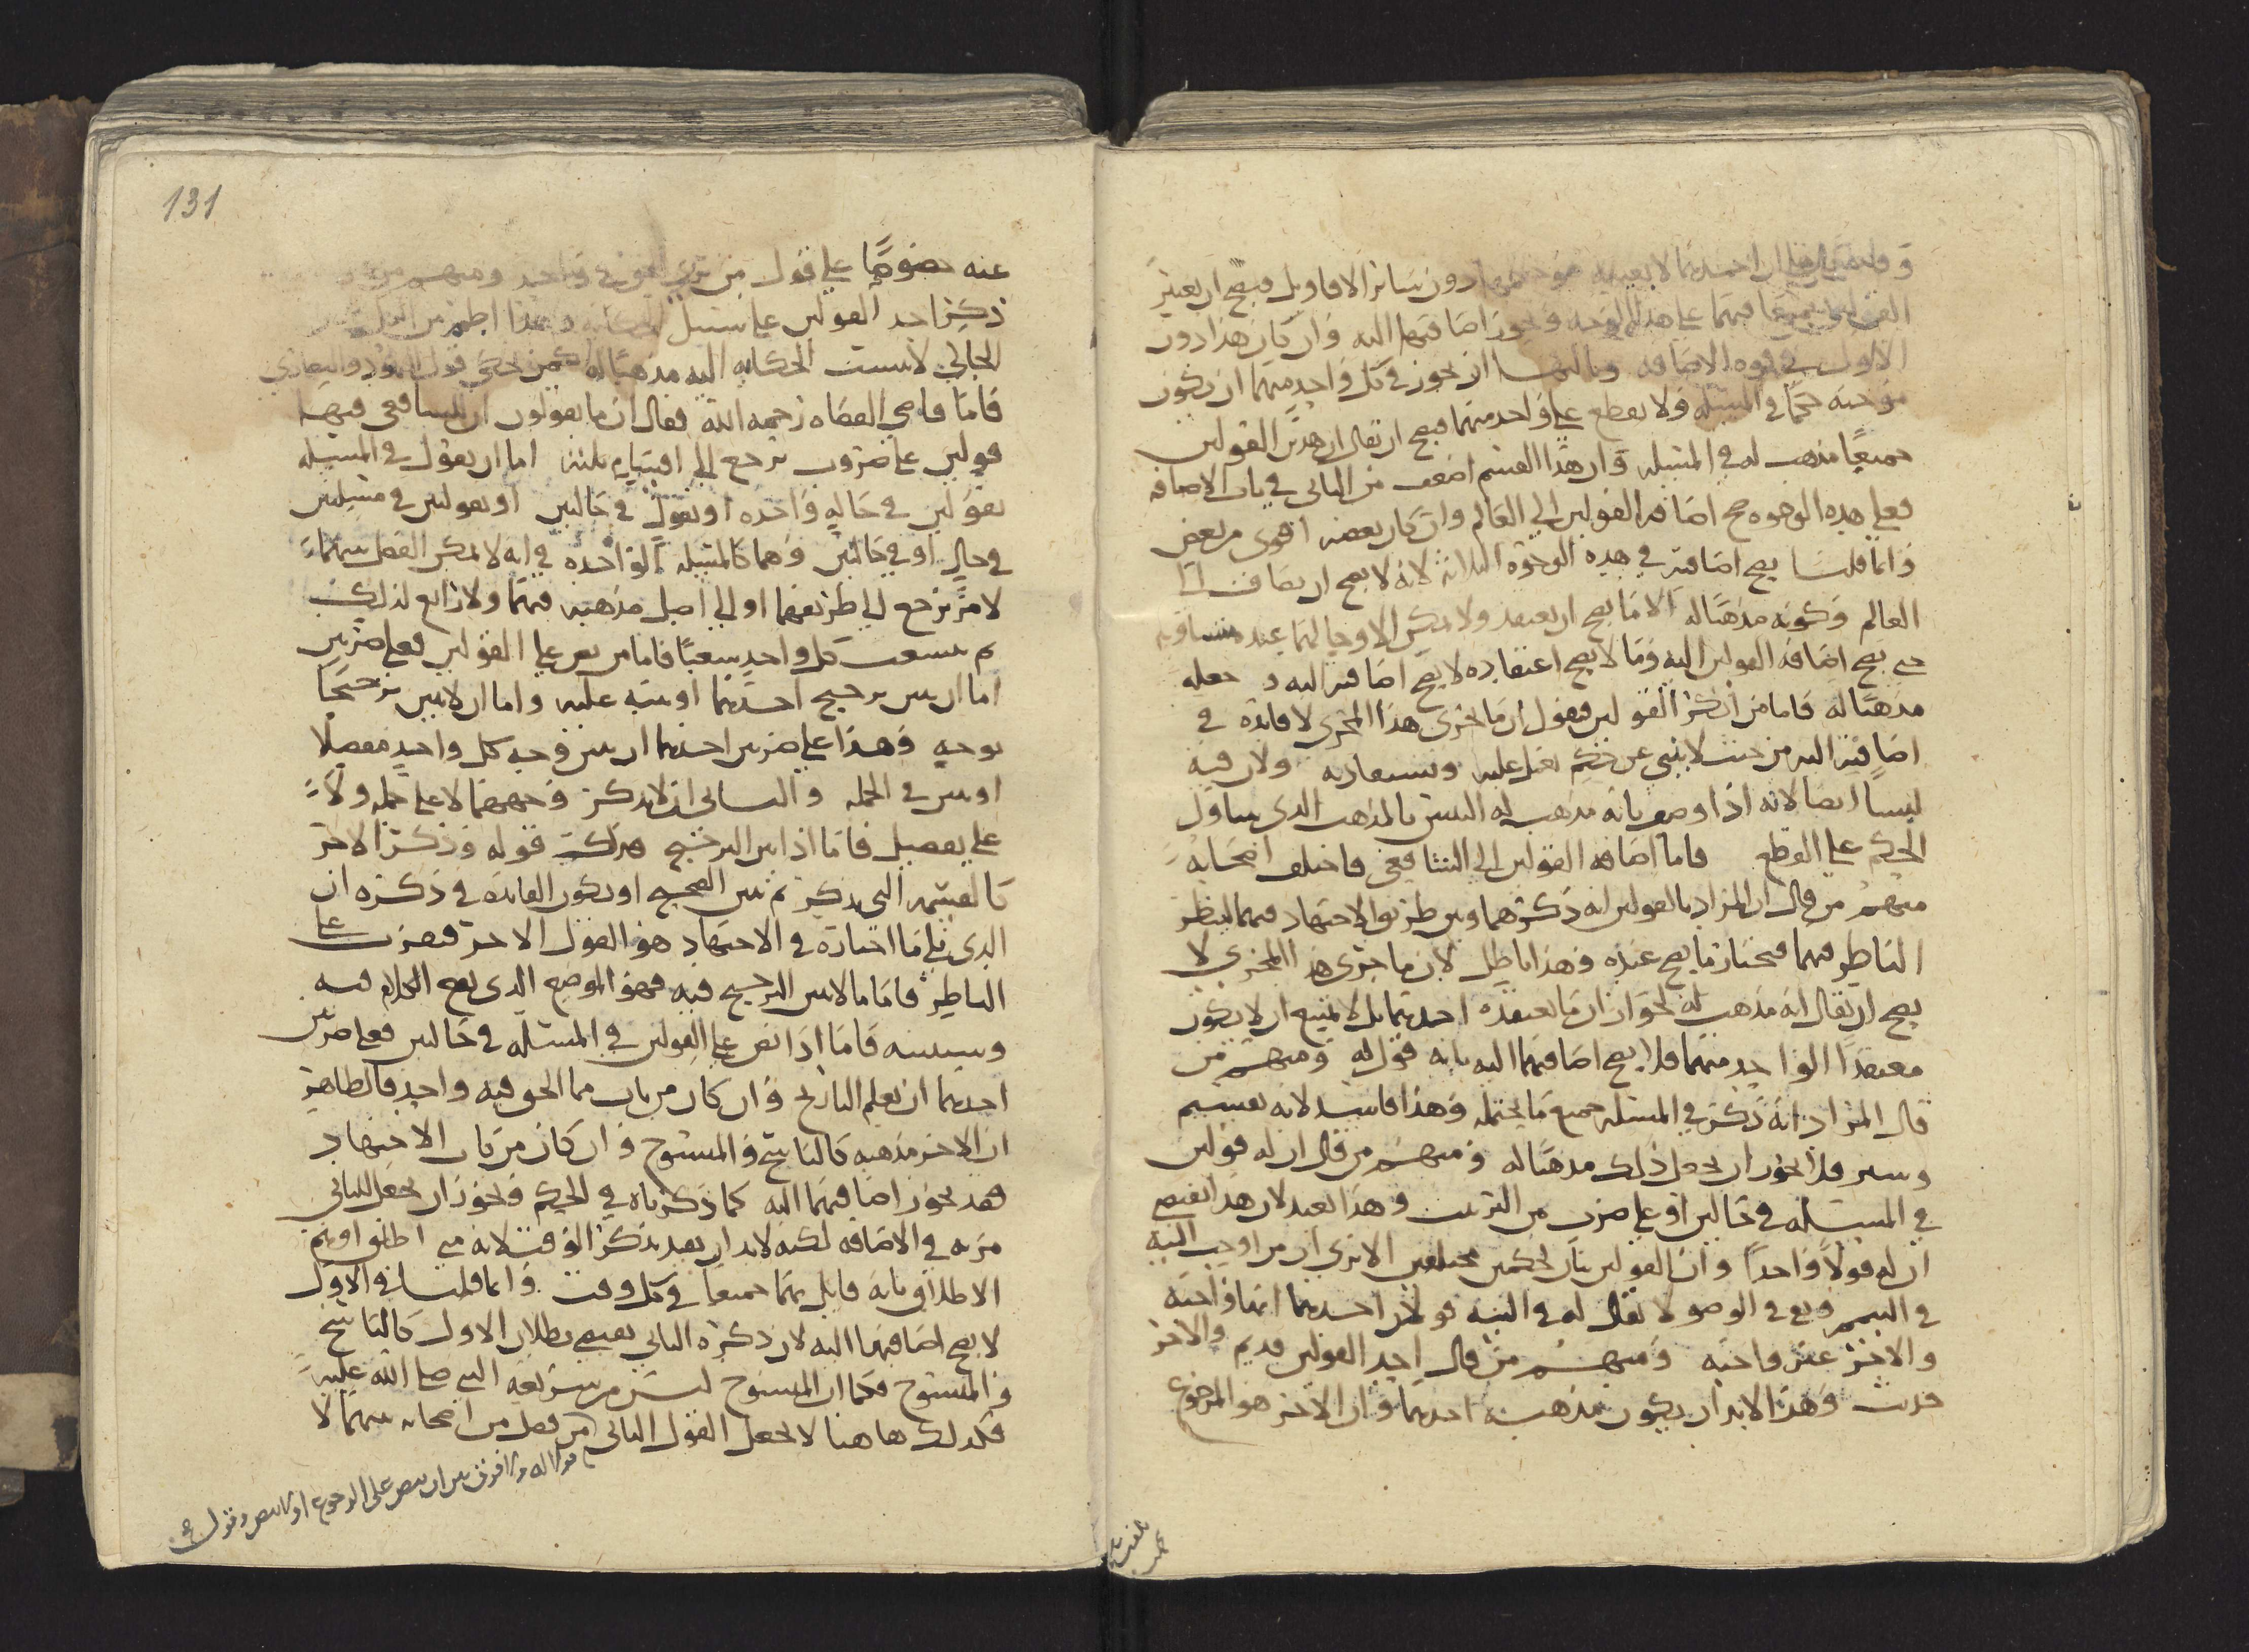 دون سائر الاقاويل فيصح ان يعتبر
القولين جميعا فيهما على هذا الوجه ويجوز اضافتهما اليه وان كان هذا دون
الاول في قوه الاضافه وثالثها ان يجوز في كل واحد منهما ان يكون
حكما في المسله ولا يقطع على واحد منهما فيصح ان يقال ان هذين القولين
جميعا مذهب له في المسله وان هذا القسم اضعف من الثاني في باب الاضافه
فعلى هذه الوجوه صح اضافه القولين الى العالم وان كان بعضه اقوى من بعض
وانما قلنا يصح اضافته في هذه الوجوه الثلاثه لانه لا يصح ان يضاف الى
العالم وكونه مذهبا له الا ما يصح ان يعتقد ولا يكن الا وحالهما عنده متساويه
حتى يصح اضافه القولين اليه وما لا يصح اعتقاده لا يصح اضافته اليه و جعله
مذهبا له فاما من انكر القولين فيقول ان ما يجرى هذا المجرى لا فائدة في
اضافته اليه من حيث لا ينبي عن حكم يعمل عليه ويستفاد به ولان فيه
لبسا ايضا لانه اذا وصف بانه مذهب له التبس بالمذهب الذى يتناول
الحكم على القطع فاما اضافه القولين الى الشافعي فاختلف اصحابه
منهم من قال ان المراد بالقولين انه ذكرهما وبين طريق الاجتهاد فيهما لينظر
الناظر فيهما فيختار ما يصح عنده وهذا باطل لان ما جرى هذا المجرى لا
يصح ان يقال انه مذهب له لجواز ان ما يعتقده احدهما بل لا يمتنع ان لا يكون
معتقدا لواحد منهما فلا يصح اضافتهما اليه بانه قول له ومنهم من
قال المراد انه ذكر في المسله جميع ما يحتمله وهذا فاسد لانه تقسيم
فلا يجوز ان يجعل ذلك مذهبا له ومنهم من قال ان له قولين
في المسله في حالين او على ضرب من الترتيب وهذا بعيد لان هذا يقتضى
ان له قولا واحدا وان القولين بان لحكمين مختلفين الا ترى ان من اوجب النيه
في التيمم في الوضو لا يقال له في النيه قولان احدهما انها واجبه
والاخر غير واجبه ومنهم من قال احد القولين قديم والاخر
حديث وهذا لابد ان يكون مذهبه احدهما وان الاخر هو المرجوع
عنه خصوصا على قول من يرى الحق في واحد ومنهم من قال
ذكر احد القولين على سبيل الحكايه وهذا اظهر من
الحاكي لا ينسب الحكايه اليه مذهبا له كمن يحكي قول اليهود والنصارى
فاما قاضي القضاه رحمه الله فقال ان ما يقولون ان للشافعى فيها
قولين على ضروب ترجع الى اشياء ثلثه اما ان يقول في المسله
بقولين في حاله واحده او يقول في حالين او بقولين في مسلتين
في حال او في حالين وهما كالمسله الواحده في انه لا يمكن الفصل بينهما
لامر يرجع الى طريقهما او الى اصل مذهبه فيهما ولا رابع لذلك
ثم يتشعب كل واحد شعبا فاما من نص على القولين فعلى ضربين
اما ان يبين ترجيح احدهما او ينبه عليه واما ان لا يبين ترجيحا
بوجه وهذا على ضربين احدهما ان يبين وجه كل واحد مفصلا
او يبين في الجمله والثانى ان لا يذكر وجههما لا على جمله ولا
على تفصيل فاما اذا بين الترجيح فترك قوله وذكر الاخر
كالقسمه التى يذكر ثم يبين الصحيح او يكون الفائده في ذكره ان
الذى يلى ما اختاره في الاجتهاد هو القول الاخر فيعرف
الناظر فاما ما لا يبين الترجيح فيه فهو الموضع الذى يقع الكلام فيه
وسنبينه فاما اذا نص على القولين في المسله في حالين فعلى ضربين
احدهما ان يعلم التاريخ وان كان من باب ما الحق فيه واحد فالظاهر
ان الاخر مذهبه كالناسخ والمنسوخ وان كان من باب الاجتهاد
فقد يجوز اضافتهما اليه كما ذكرناه في الحكم ويجوز ان يجعل للثانى
مزيه في الاضافه لكنه لابد ان يقيد بذكر الوقت لانه متى اطلق اوهم
الاطلاق بانه قايل بهما جميعا في كل وقت وانما قلنا في الاول
لا يصح اضافتهما اليه لان ذكره الثانى يقتضى بطلان الاول كالناسخ
والمنسوخ فكما ان المنسوخ ليس من شريعة النبى صلى الله عليه
فكذلك هاهنا لا يجعل القول الثانى من فصل من اصحابه بينهما لا
131